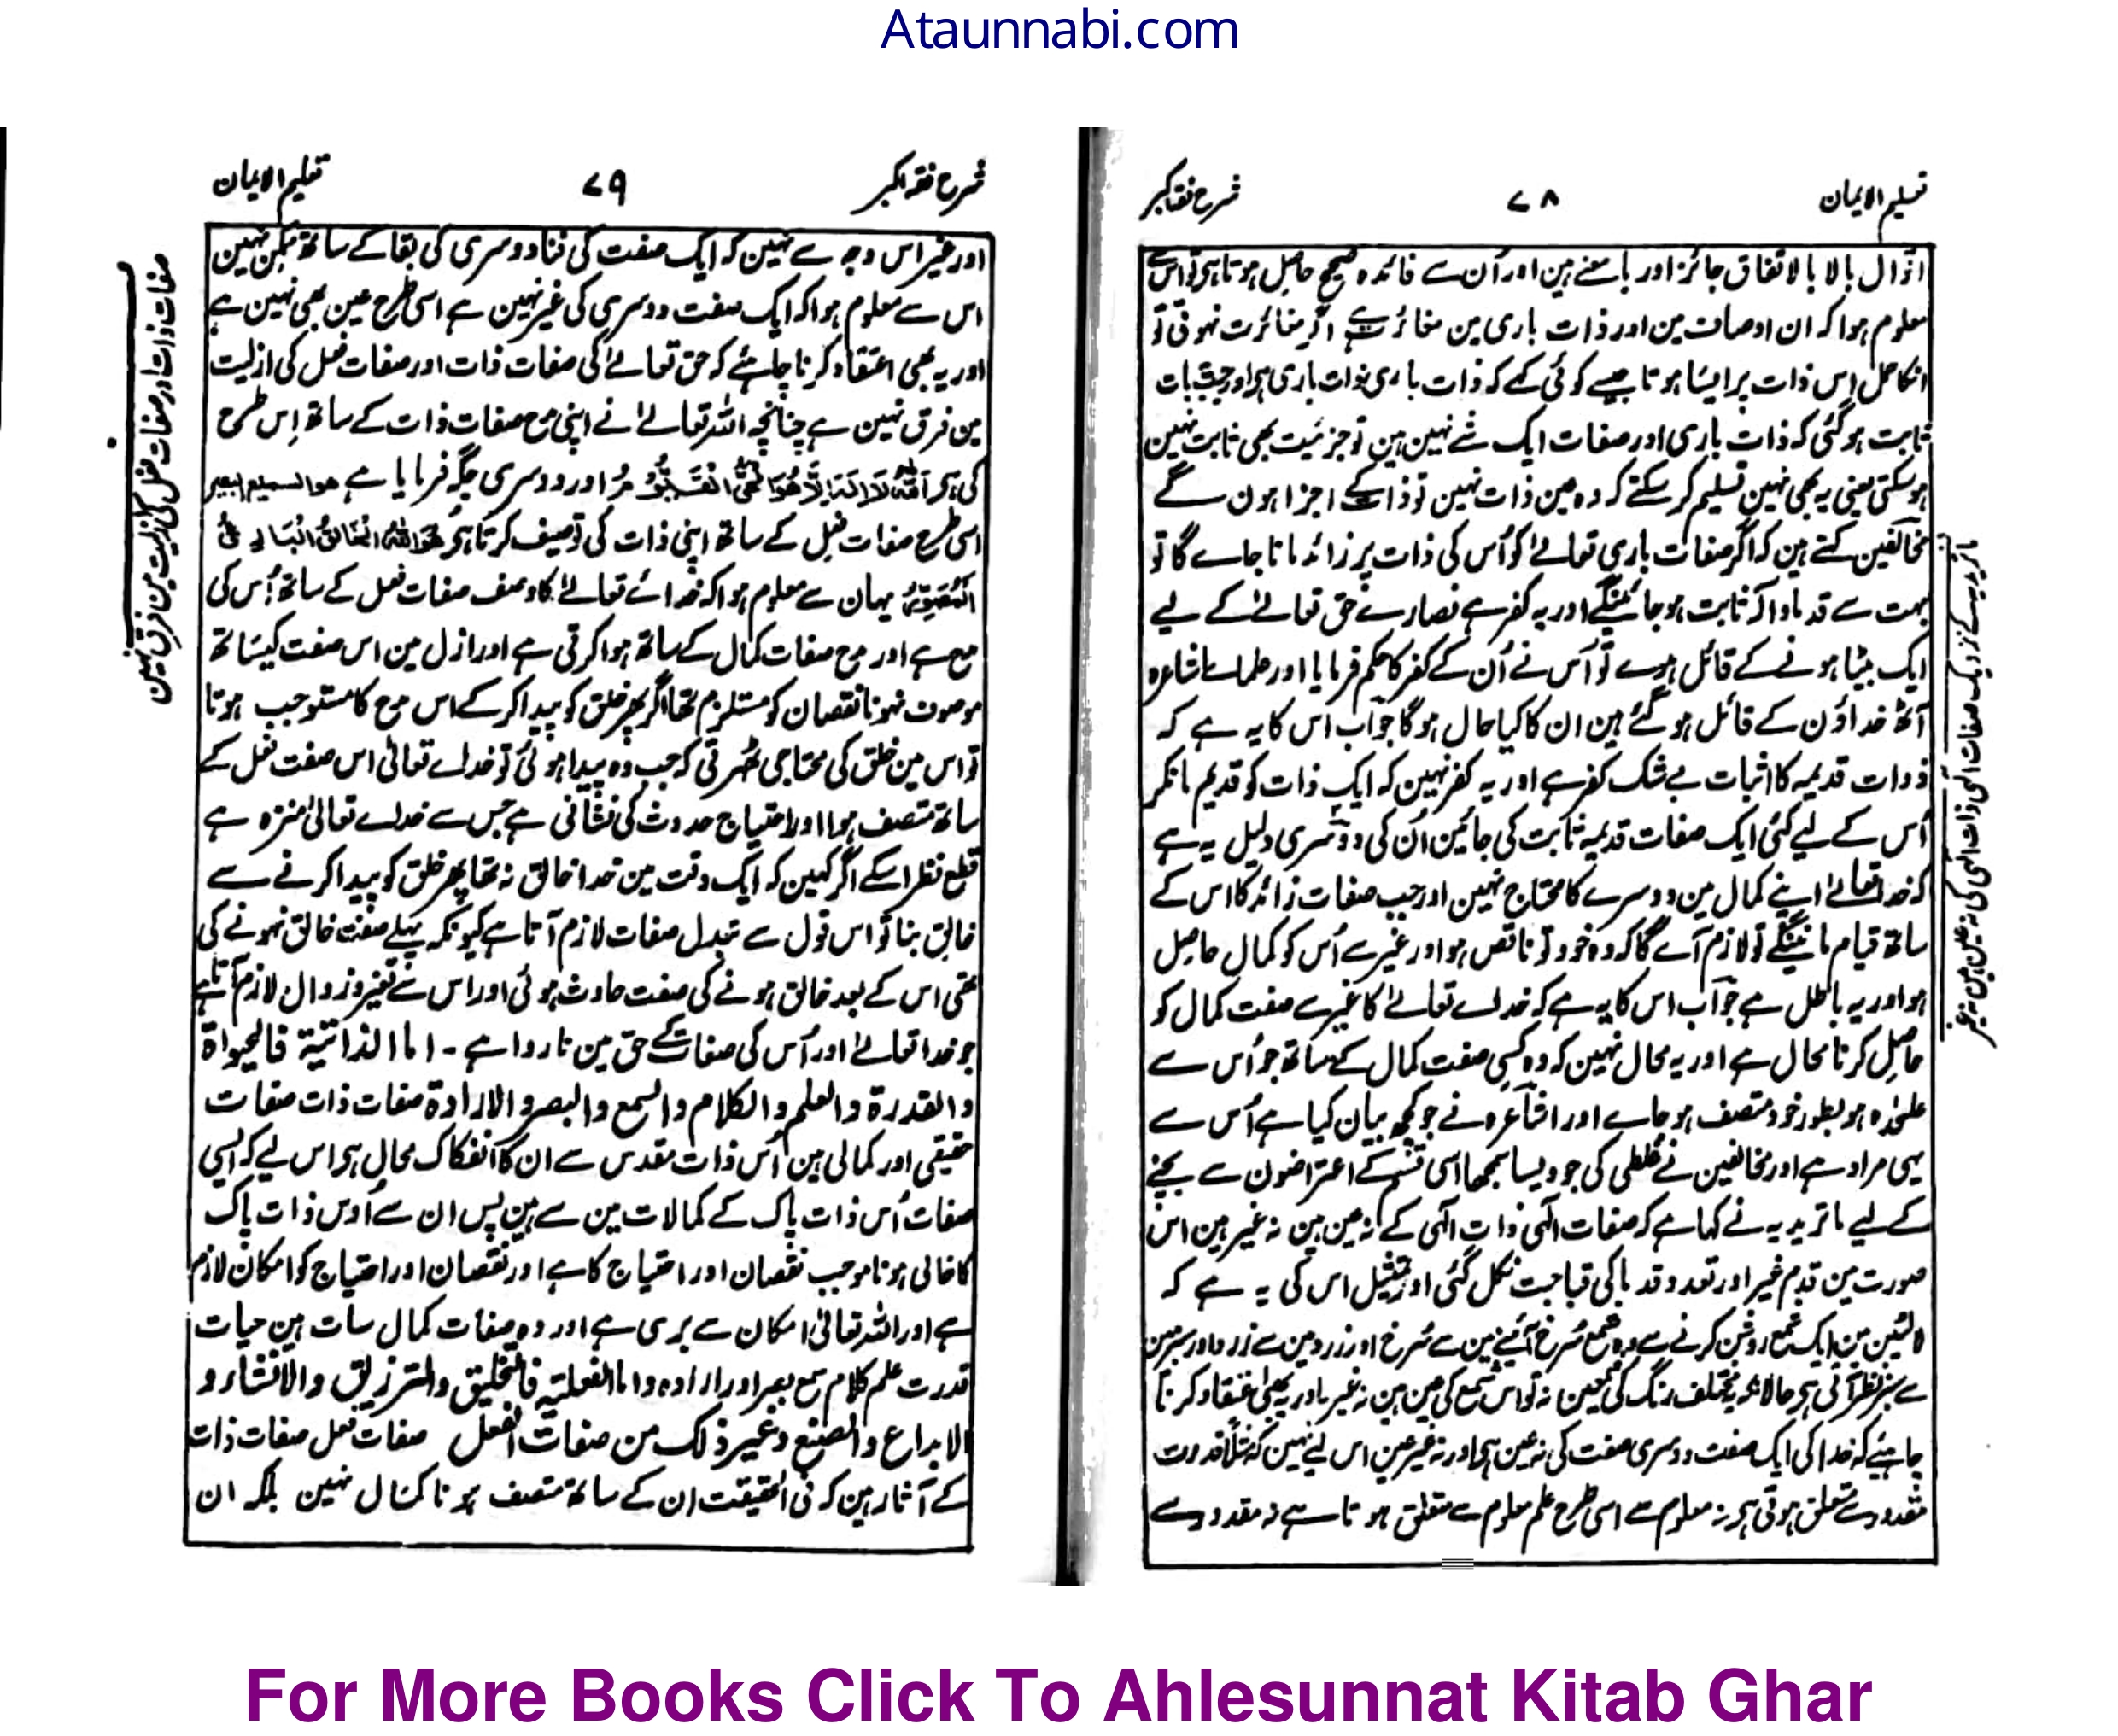 Ataunnabi.com
تعلیم الایمان
۷۸
شرح فقہ اکبر
اقوال بالا بالاتفاق جائز اور بامعنے ہین اور اُن سے فائدہ صحیح حاصل ہوتا ہی تو اس سے
معلوم ہوا کہ ان اوصاف مین اور ذات باری مین مغائرت ہے اگر مغائرت نہوتی تو
انکا حمل اس ذات پر ایسا ہوتا جیسے کوئی کہے کہ ذات باری ذات باری ہی اور جب یہ بات
ثابت ہوگئی کہ ذات باری اور صفات ایک شے نہین ہین تو جزئیت بھی ثابت نہین
ہوسکتی یعنی یہ بھی نہین تسلیم کرسکتے کہ وہ عین ذات نہین تو ذات کے اجزا ہون گے
مخالفین کہتے ہین کہ اگر صفات باری تعالےٰ کو اُس کی ذات پر زائد مانا جاے گا تو
بہت سے قدماء اکر ثابت ہوجائینگے اور یہ کفر ہے نصارے حق تعالےٰ کے لیے
ایک بیٹا ہونے کے قائل ہوے تو اُس نے اُن کے کفر کا حکم فرمایا اور علماے اشاعرہ
آٹھ خداؤن کے قائل ہوگئے ہین ان کا کیا حال ہوگا جواب اس کا یہ ہے کہ
ذوات قدیمہ کا اثبات بے شک کفر ہے اور یہ کفر نہین کہ ایک ذات کو قدیم مانکر
اُس کے لیے کئی ایک صفات قدیمہ ثابت کی جائین اُن کی دوسری دلیل یہ ہے
کہ خداتعالےٰ اپنے کمال مین دوسرے کا محتاج نہین اور جب صفات زائد کا اس کے
ساتھ قیام مانینگے تو لازم آے گا کہ وہ خود تو ناقص ہو اور غیرے اُس کو کمال حاصل
ہو اور یہ باطل ہے جواب اس کا یہ ہے کہ خداے تعالےٰ کا غیرے صفت کمال کو
حاصل کرنا محال ہے اور یہ محال نہین کہ وہ کسی صفت کمال کے ساتھ جو اُس سے
علیٰحدہ ہو بطور خود متصف ہوجاے اور اشاعرہ نے جو کچھ بیان کیا ہے اُس سے
یہی مراد ہے اور مخالفین نے غلطی کی جو ویسا سمجھا اسی قسم کے اعتراضون سے بچنے
کے لیے ماتریدیہ نے کہا ہے کہ صفات الٰہی ذات الٰہی کے نہ عین ہین نہ غیر ہین اس
صورت مین قدم غیر اور تعدد قدما کی قباحت نکل گئی اور تمثیل اس کی یہ ہے کہ
لالٹین مین ایک شمع روشن کرنے سے وہ شمع سُرخ آئینے مین سے سُرخ اور زرد مین سے زرد اور سبز مین
سے سبز نظر آتی ہی حالانکہ یہ مختلف رنگ کی شمعین نہ تو اس شمع کی عین ہین نہ غیر اور یہ بھی اعتقاد کرنا
چاہیئے کہ خدا کی ایک صفت دوسری صفت کی نہ عین ہی اور نہ غیر عین اس لیے نہین کہ مثلاً قدرت
مقدور سے متعلق ہوتی ہی نہ معلوم سے اسی طرح علم معلوم سے متعلق ہوتا ہے نہ مقدور سے
ماتریدیہ کے نزدیک صفات الٰہی ذات الٰہی کی نہ عین ہین نہ غیر
شرح فقہ اکبر
۷۹
تعلیم الایمان
اور غیر اس وجہ سے نہین کہ ایک صفت کی فنا دوسری کی بقا کے ساتھ ممکن نہین
اس سے معلوم ہوا کہ ایک صفت دوسری کی غیر نہین ہے اسی طرح عین بھی نہین ہے
اور یہ بھی اعتقاد کرنا چاہیئے کہ حق تعالےٰ کی صفات ذات اور صفات فعل کی ازلیت
مین فرق نہین ہے چنانچہ اللہ تعالےٰ نے اپنی مدح صفات ذات کے ساتھ اِس طرح
کی ہی اَللّٰهُ لَا اِلٰهَ اِلَّا هُوَ الْحَیُّ الْقَیُّوْمُ اور دوسری جگہ فرمایا ہے هو السمیع البصیر
اسی طرح صفات فعل کے ساتھ اپنی ذات کی توصیف کرتا ہی هُوَ اللّٰهُ الْخَالِقُ الْبَارِئُ
الْمُصَوِّرُ یہان سے معلوم ہوا کہ خدائے تعالےٰ کا وصف صفات فعل کے ساتھ اُس کی
مدح ہے اور مدح صفات کمال کے ساتھ ہوا کرتی ہے اور ازل مین اس صفت کیساتھ
موصوف نہونا نقصان کو مستلزم تھا اگر پھر خلق کو پیدا کرکے اس مدح کا مستوجب ہوتا
تو اس مین خلق کی محتاجی ٹھہرتی کہ جب وہ پیدا ہوئی تو خداے تعالیٰ اس صفت فعل کے
ساتھ متصف ہوا اور احتیاج حدوث کی نشانی ہے جس سے خداے تعالیٰ منزہ ہے
قطع نظر اسکے اگر کہین کہ ایک وقت مین خدا خالق نہ تھا پھر خلق کو پیدا کرنے سے
خالق بنا تو اس قول سے تبدل صفات لازم آتا ہے کیونکہ پہلے صفت خالق نہونے کی
تھی اس کے بعد خالق ہونے کی صفت حادث ہوئی اور اس سے تغیر و زوال لازم آتا ہے
جو خدا تعالےٰ اور اُس کی صفات کے حق مین ناروا ہے - اما الذاتیة فالحیوٰة
والقدرة والعلم والکلام والسمع والبصر والارادة صفات ذات صفات
حقیقی اور کمالی ہین اُس ذات مقدس سے ان کا انفکاک محال ہی اس لیے کہ ایسی
صفات اُس ذات پاک کے کمالات مین سے ہین پس ان سے اوس ذات پاک
کا خالی ہونا موجب نقصان اور احتیاج کا ہے اور نقصان اور احتیاج کو امکان لازم
ہے اور اللہ تعالیٰ امکان سے بری ہے اور وہ صفات کمال سات ہین حیات
قدرت علم کلام سمع بصر اور ارادہ واما الفعلیة فالتخلیق والترزیق والانشاء و
الابداع والصنع وغیر ذلک من صفات الفعل صفات فعل صفات ذات
کے آثار ہین کہ فی الحقیقت ان کے ساتھ متصف ہونا کمال نہین بلکہ ان
صفات ذات اور صفات فعل کی ازلیت مین فرق نہین
For More Books Click To Ahlesunnat Kitab Ghar